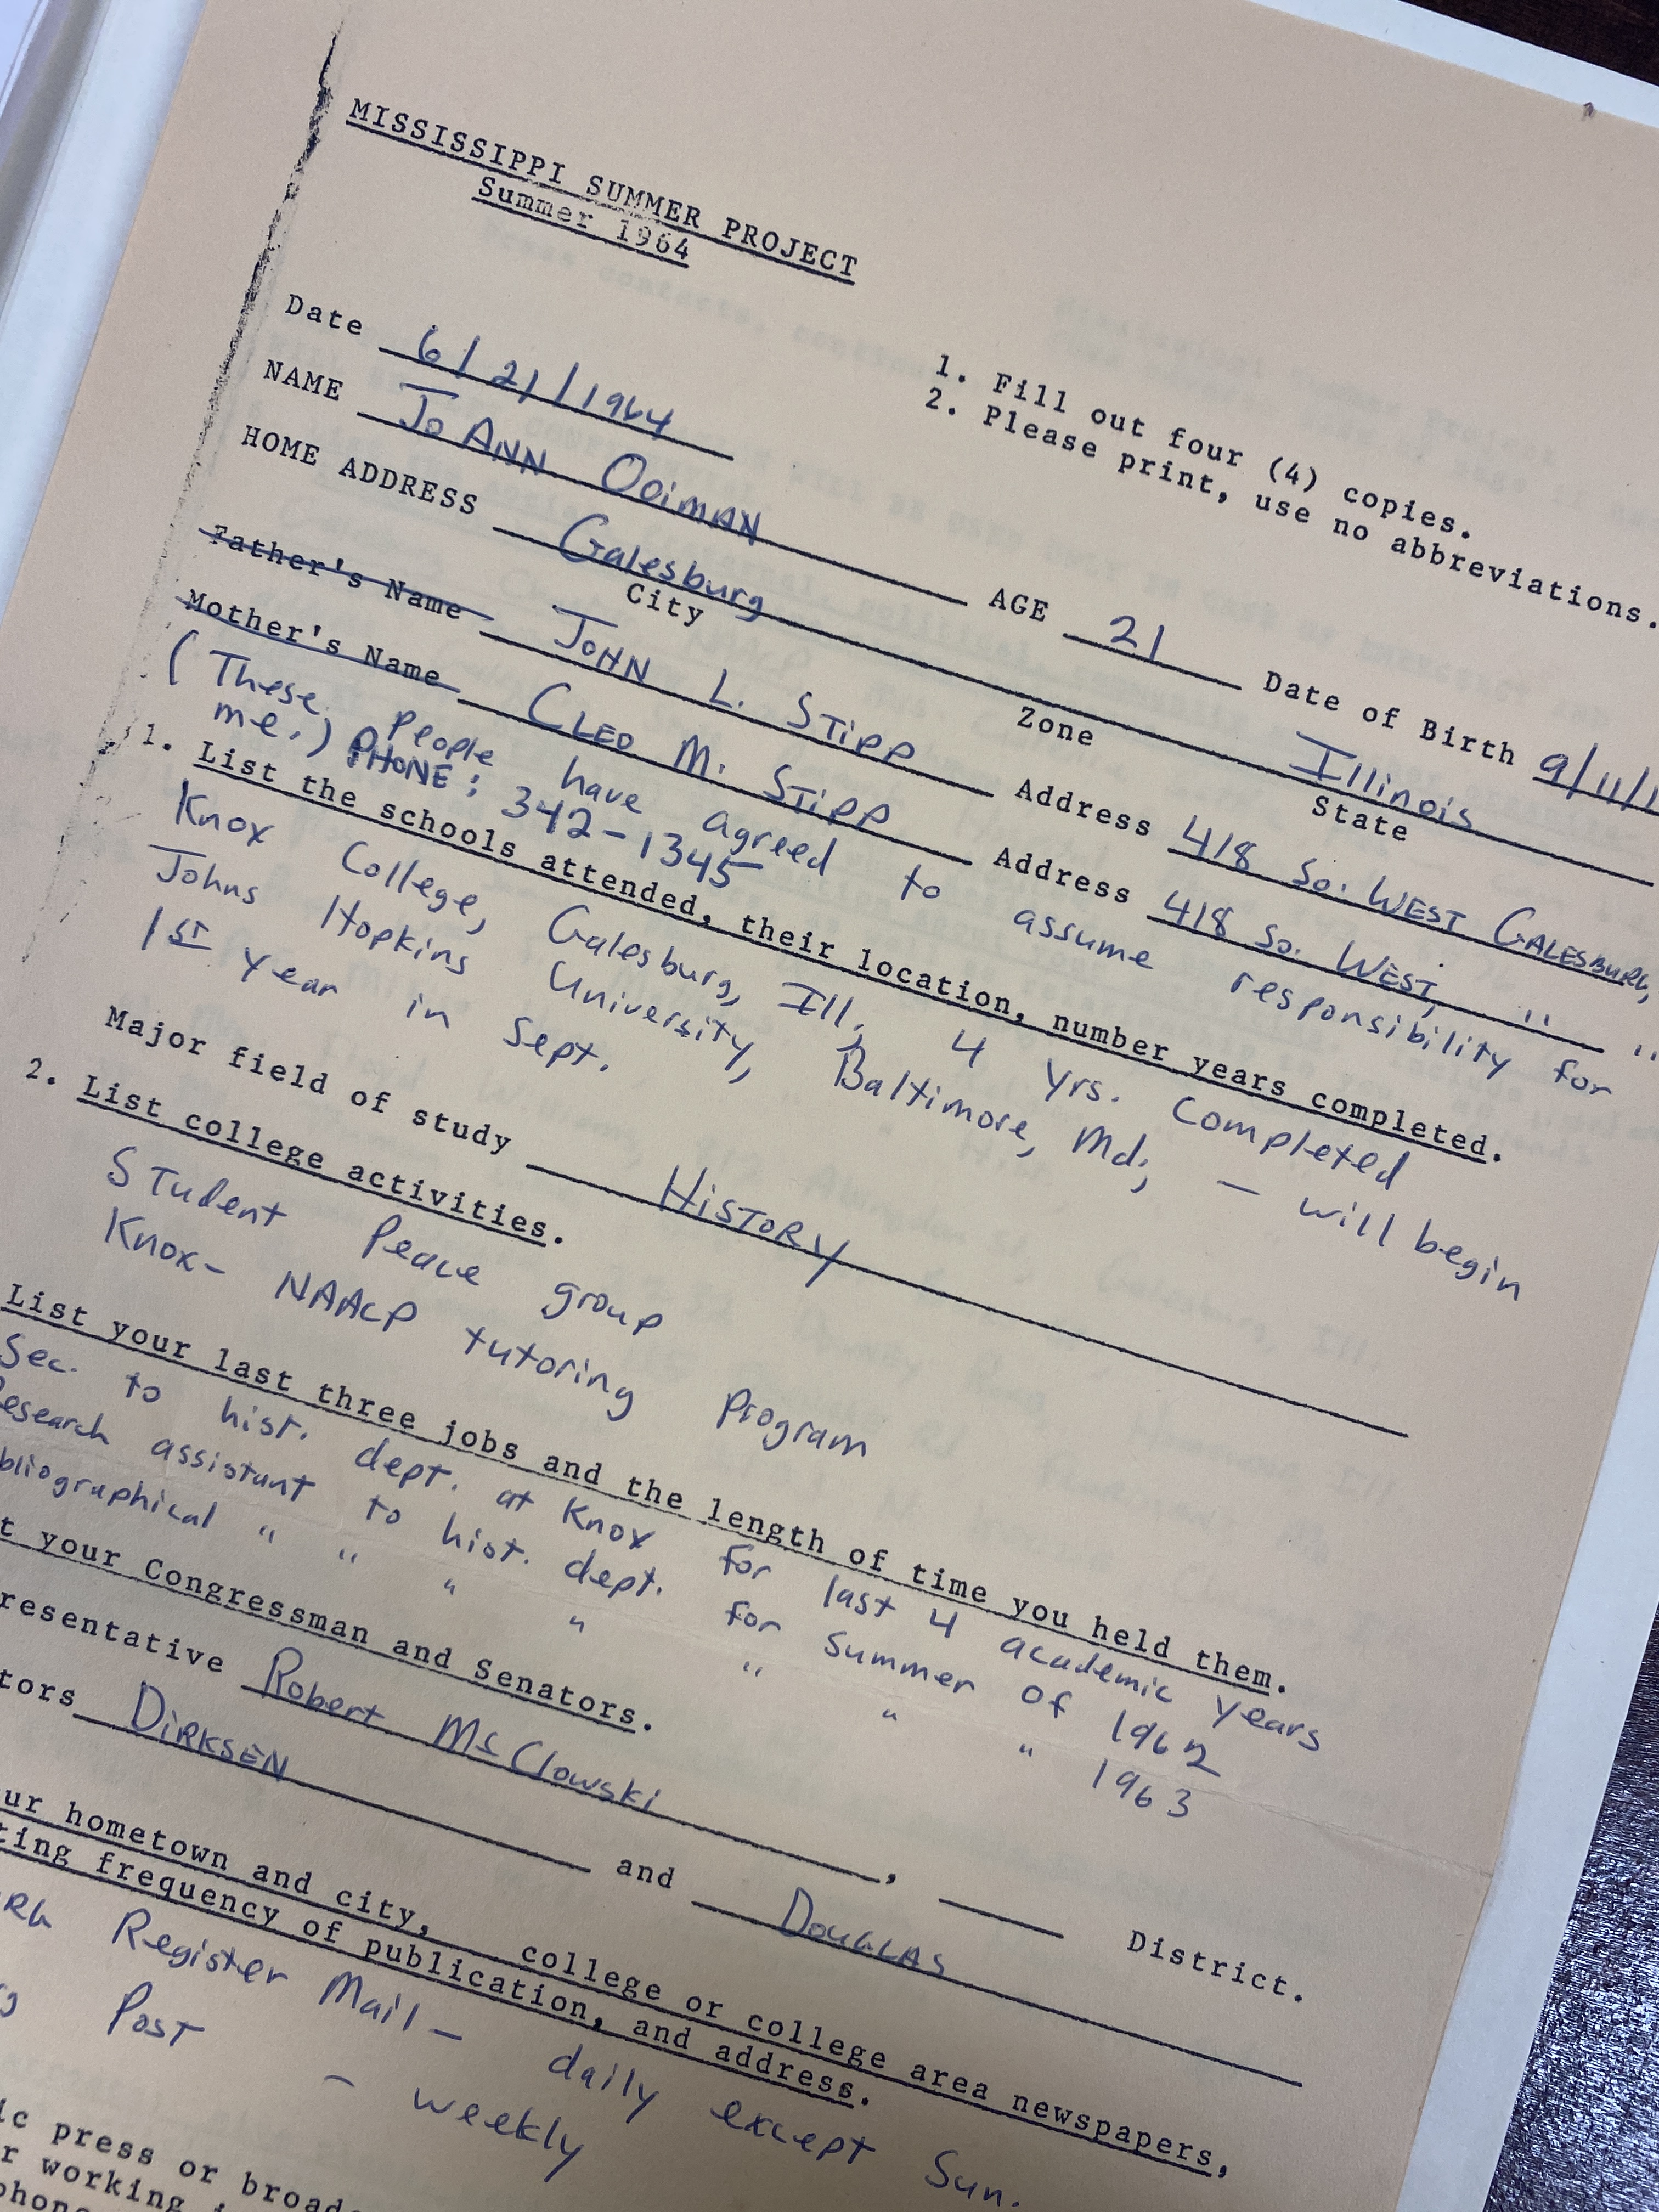 MISSISSIPPI SUMMER PROJECT
Summer 1964
1. Fill out four (4) copies.
2. Please print, use no abbreviations.
Date 6/21/1964
NAME Jo ANN OoiMAN AGE 21 Date of Birth 9/11/1
HOME ADDRESS Galesburg Illinois
City Zone State
Father's Name JOHN L. STiPP Address 418 So. WEST GALESBURG,
Mother's Name CLEO M. STiPP Address 418 So. WEST, " "
(These people have agreed to assume responsibility for
me.) PHONE: 342-1345
1. List the schools attended, their location, number years completed.
Knox College, Galesburg, Ill; 4 yrs. completed
Johns Hopkins University, Baltimore, Md; - will begin
1st year in Sept.
Major field of study HiSTORY
2. List college activities.
STudent Peace group
Knox- NAACP tutoring program
List your last three jobs and the length of time you held them.
Sec. to hist. dept. at Knox for last 4 academic years
esearch assistant to hist. dept. for summer of 1962
bliographical " " " " " " " 1963
t your Congressman and Senators.
resentative Robert McClowski, District.
tors DiRKSEN and DOUGLAS
ur hometown and city, college or college area newspapers,
ting frequency of publication, and address.
RG Register Mail - daily except Sun.
Post - weekly
ic press or broad
r working i
phon